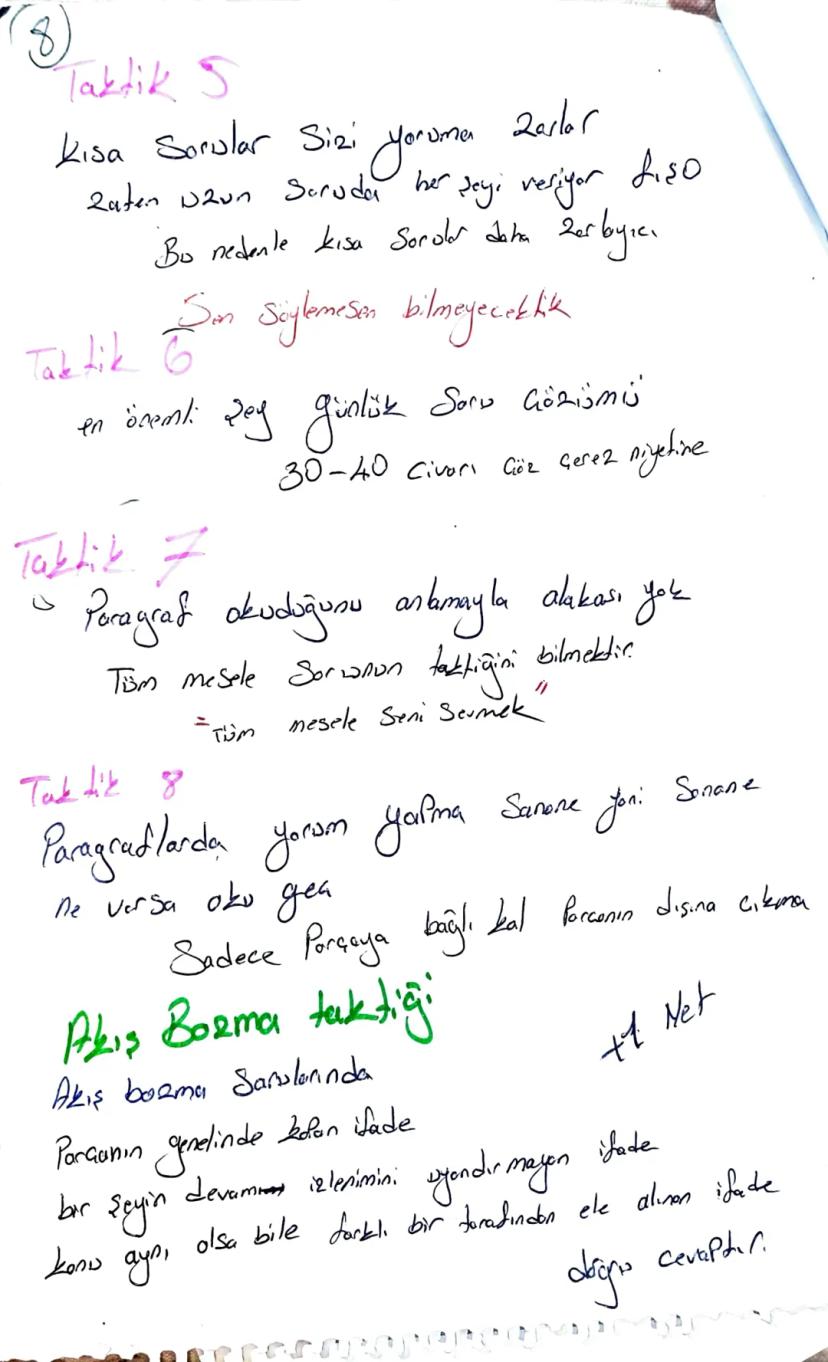 8
Taktik 5
Kısa Sorular Sizi yoruma zorlar
zaten uzun Soruda her şeyi veriyor
Bu nedenle kısa Sorular daha zorlayıcı
Sen söylemesen bilmeyecektik
Taktik 6
en önemli şey günlük Soru Çözümü
30-40 Civarı Çöz çerez niyetine
Taktik 7
Paragraf okuduğunu anlamayla alakası yok
Tüm mesele Sorunun taktiğini bilmektir.
"Tüm mesele Seni Sevmek"
Taktik 8
Paragraflarda yorum yapma Sanane yani Sanane
ne varsa oku geç
Sadece Parçaya bağlı kal Parçanın dışına çıkma
Akış Bozma taktiği
+1 Net
Akış bozma Sorularında
Parçanın genelinde kalan ifade
bir şeyin devamı izlenimini uyandırmayan ifade
konu aynı olsa bile farklı bir tarafından ele alınan ifade
doğru cevaptır.